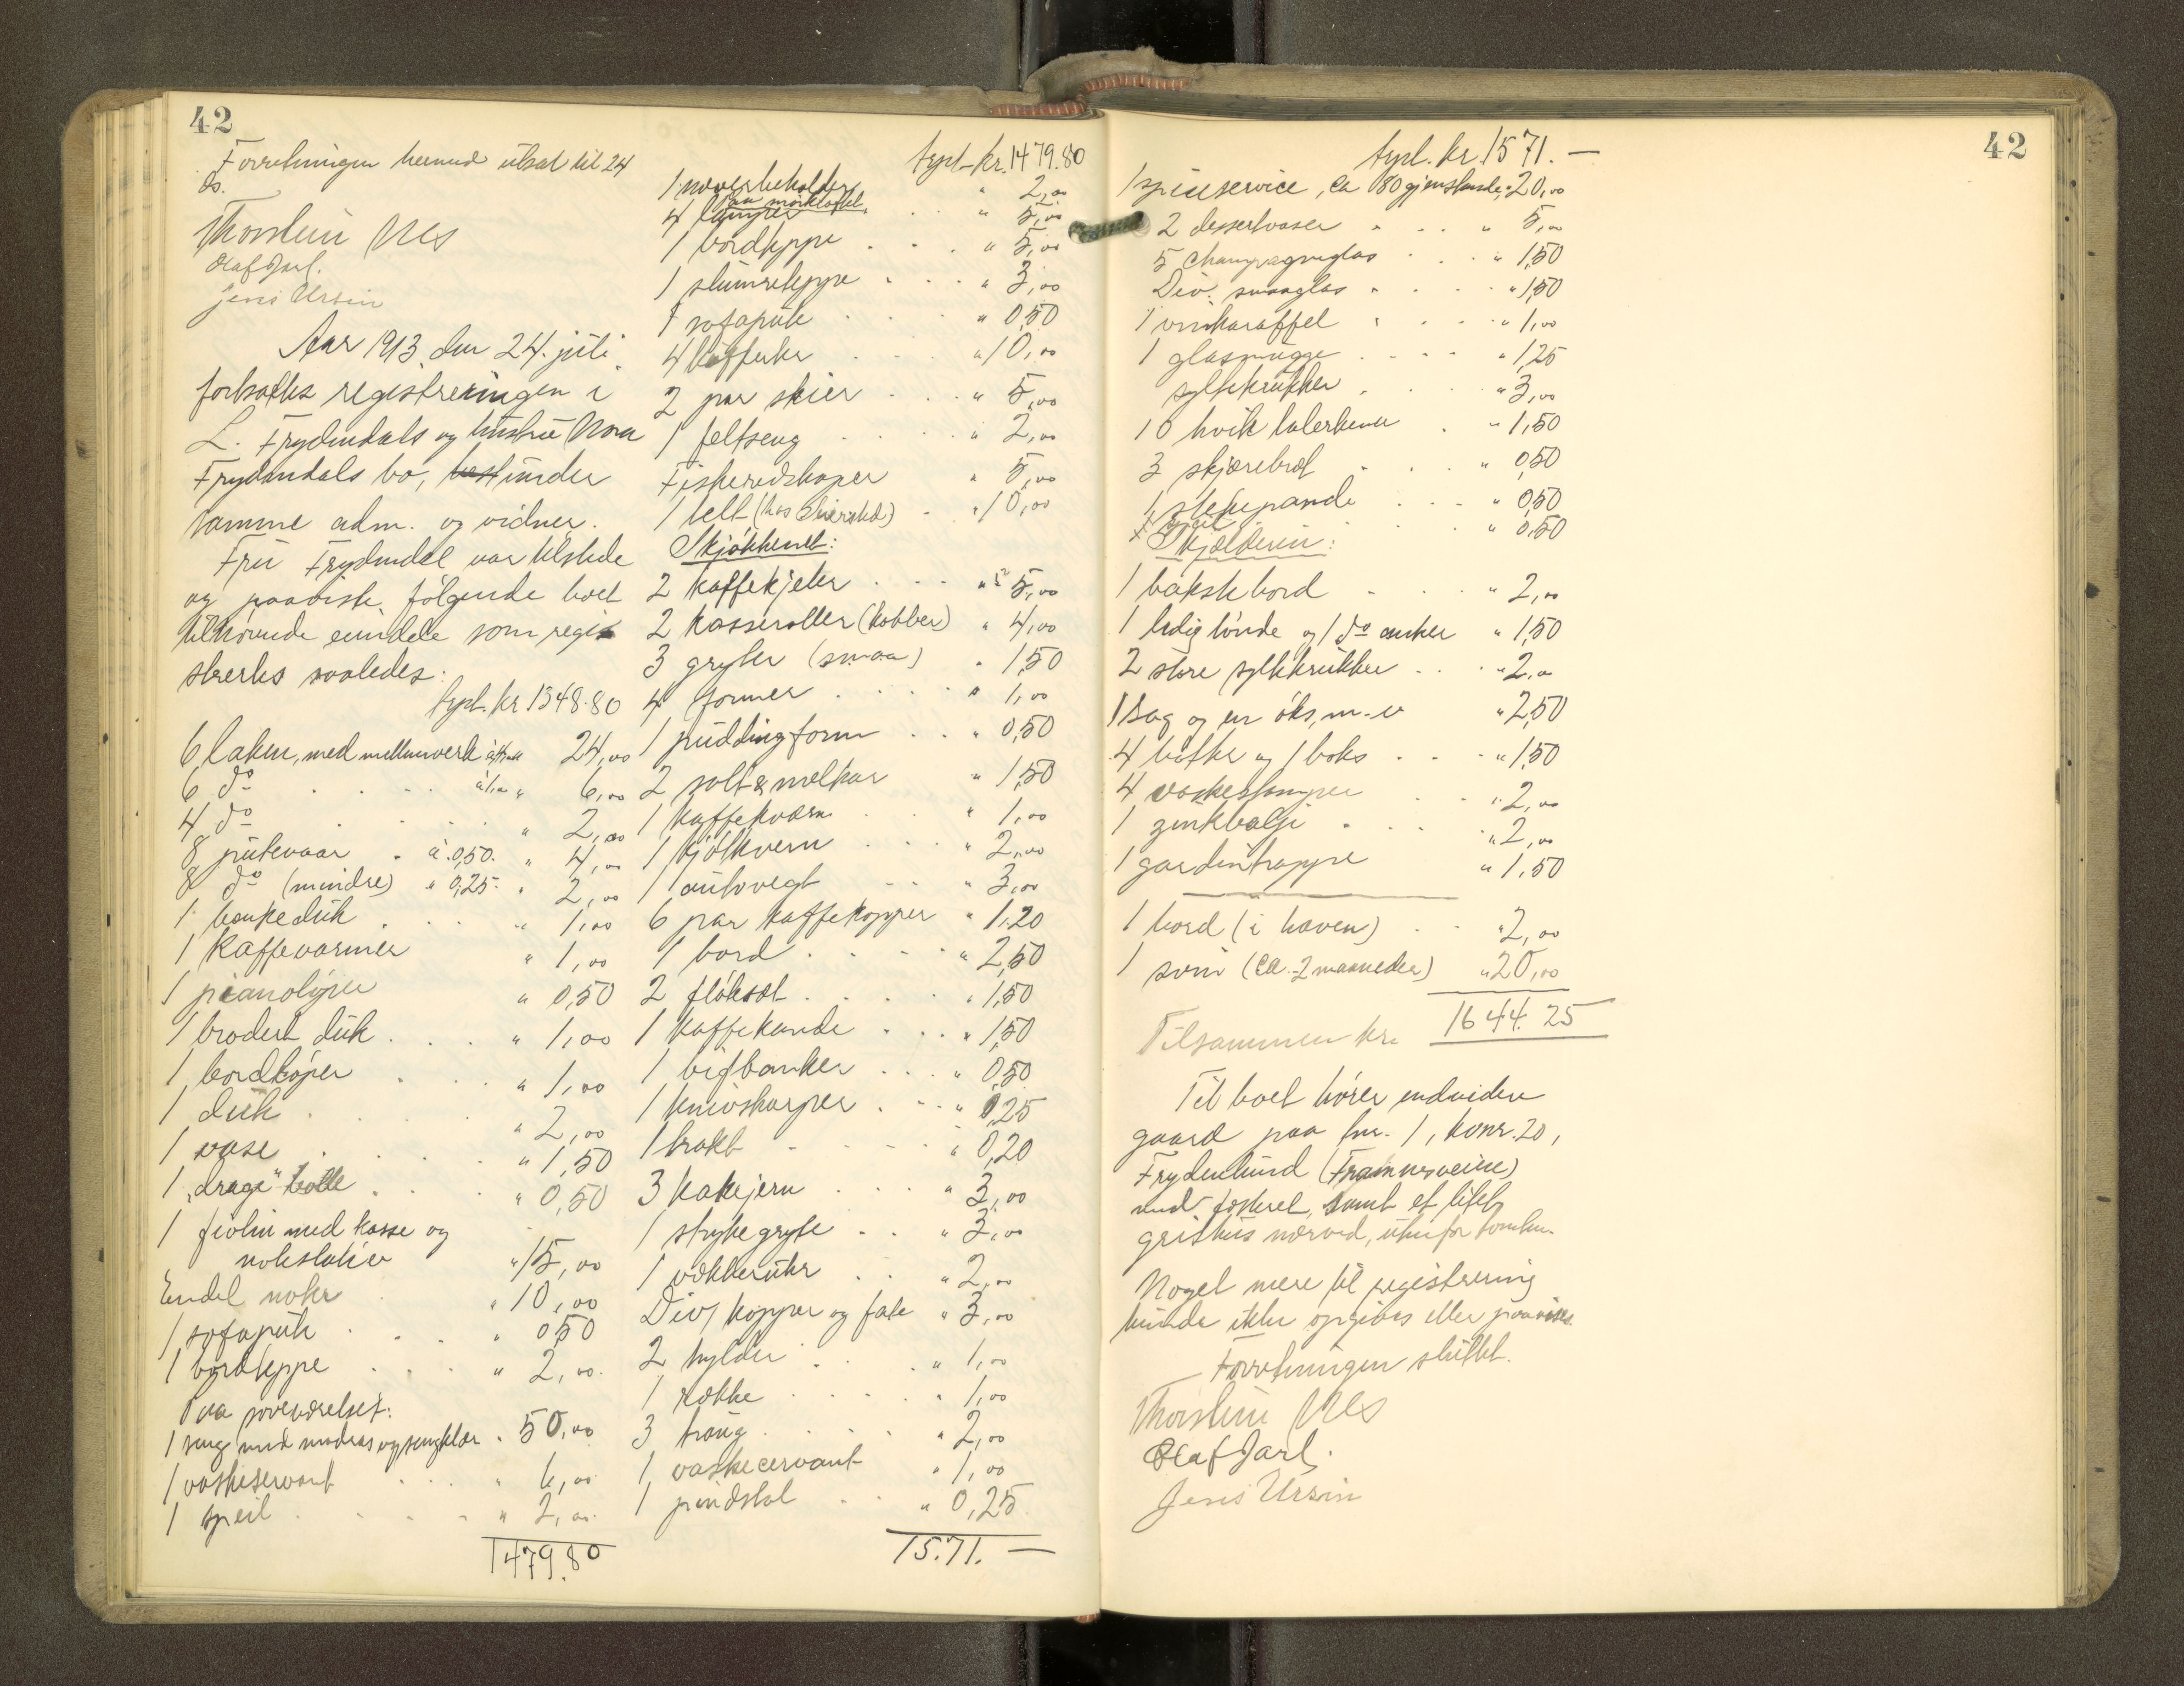 42
Forretningen herved utsat til 24
ds.
Thorstein Nes
Olaf Jarl.
Jens Ursin
Aar 1913 den 24. juli
fortsattes registreringen i
L. Frydendals og hustru Nora
Frydendals bo, under
samme adm. og vidner.
Fru Frydendal var tilstede
og paaviste følgende boet
tilhørende eiendele som regi-
strertes saaledes:
trpt. kr 1348.80
6 laken, med mellemverk 24,00
6 do . . . . à 1,00 " 6,00
4 do . . . . " 2,00
8 putevaar . à 0,50. " 4,00
8 do (mindre) " 0,25. " 2,00
1 bankeduk . . . " 1,00
1 Kaffevarmer " 1,00
1 pianoløper " 0,50
1 brodert duk . . . " 1,00
1 bordløper . . . " 1,00
1 duk . . . . " 2,00
1 vase . . . . " 1,50
1 "drage" bolle . . . " 0,50
1 fiolin med kasse og
notestativ " 15,00
Endel noter . " 10,00
1 sofapute . . . " 0,50
1 bordteppe . . . " 2,00.
Paa soveværelset:
1 seng med madras og sengklær " 50,00
1 vaskeservant . . . " 6,00
1 speil . . . . " 2,00.
1479.80
trpt kr. 1479.80
" 2,00
paa mørkloftet
4 lamper . . " 5,00
1 bordteppe . . . " 5,00
1 slumreteppe . . . " 3,00
1 sofapute . . . " 0,50
4 kufferter . . . " 10,00
2 par skier . . . " 5,00
1 feltseng . . . . " 2,00
Fiskeredskaper " 5,00
1 telt (hos ) . " 10,00
Kjøkkenet:
2 kaffekjeler . . . " 5,00
2 kasseroller (kobber) " 4,00
3 gryter (smaa) " 1,50
4 former . . . . " 1,00
1 puddingform . . " 0,50
2 salt & melkar " 1,50
1 kaffekværn . . " 1,00
1 kjøtkvern . . . " 2,00
1 autovegt . . " 3,00
6 par kaffekopper " 1,20
1 bord . . . . " 2,50
2 fløksæt . . . . " 1,50
1 kaffekande . . . " 1,50
1 bifbanker . . . " 0,50
1 knivskarper . . . " 0,25
1 brakk . . . . " 0,20
3 kakejern . . . . " 3,00
1 strykegryte . . " 3,00
1 vækkeruhr . . " 2,00
Div. kopper og fate " 3,00
2 hylder . . . " 1,00
1 række . . . . " 1,00
3 traug . . . . " 2,00
1 vaskecervant " 1,00
1 pindstol . . " 0,25
1571. —
42
trpt. kr. 1571. —
1 spiseservice, ca 80 gjenstande " 20,00
2 dessertvaser . . . " 5,00
5 champagneglas . . . " 1,50
Div. smaaglas . . . " 1,50
1 vinkaraffel . . . " 1,00
1 glasmugge . . . . " 1,25
syltekrukker . . . " 3,00
10 hvite talerkener . " 1,50
3 skjærebræt . . . " 0,50
1 stekepande . . . " 0,50
" 0,50
Kjælderen:
1 bakstebord . . . " 2,00
1 ledig tønde og 1 do anker " 1,50
2 store syltekrukker . . " 2,00
1 sag og en øks, m.v " 2,50
4 bøtter og 1 boks . . " 1,50
4 vaskestamper . . " 2,00
1 zinkbalje . . . . " 2,00
1 gardintrappe " 1,50
1 bord (i haven) . . " 2,00
1 svin (ca. 2 maaneder) " 20,00
Tilsammen kr. 1644.25
Til boet hører endvidere
gaard paa bnr. 1, konr. 20,
Frydenlund (Framnesveien)
med fæsteret, samt et litet
grishus nærved, utenfor tomten.
Noget mere til registrering
kunde ikke opgives eller paavises.
Forretningen sluttet.
Thorstein Nes
Olaf Jarl.
Jens Ursin